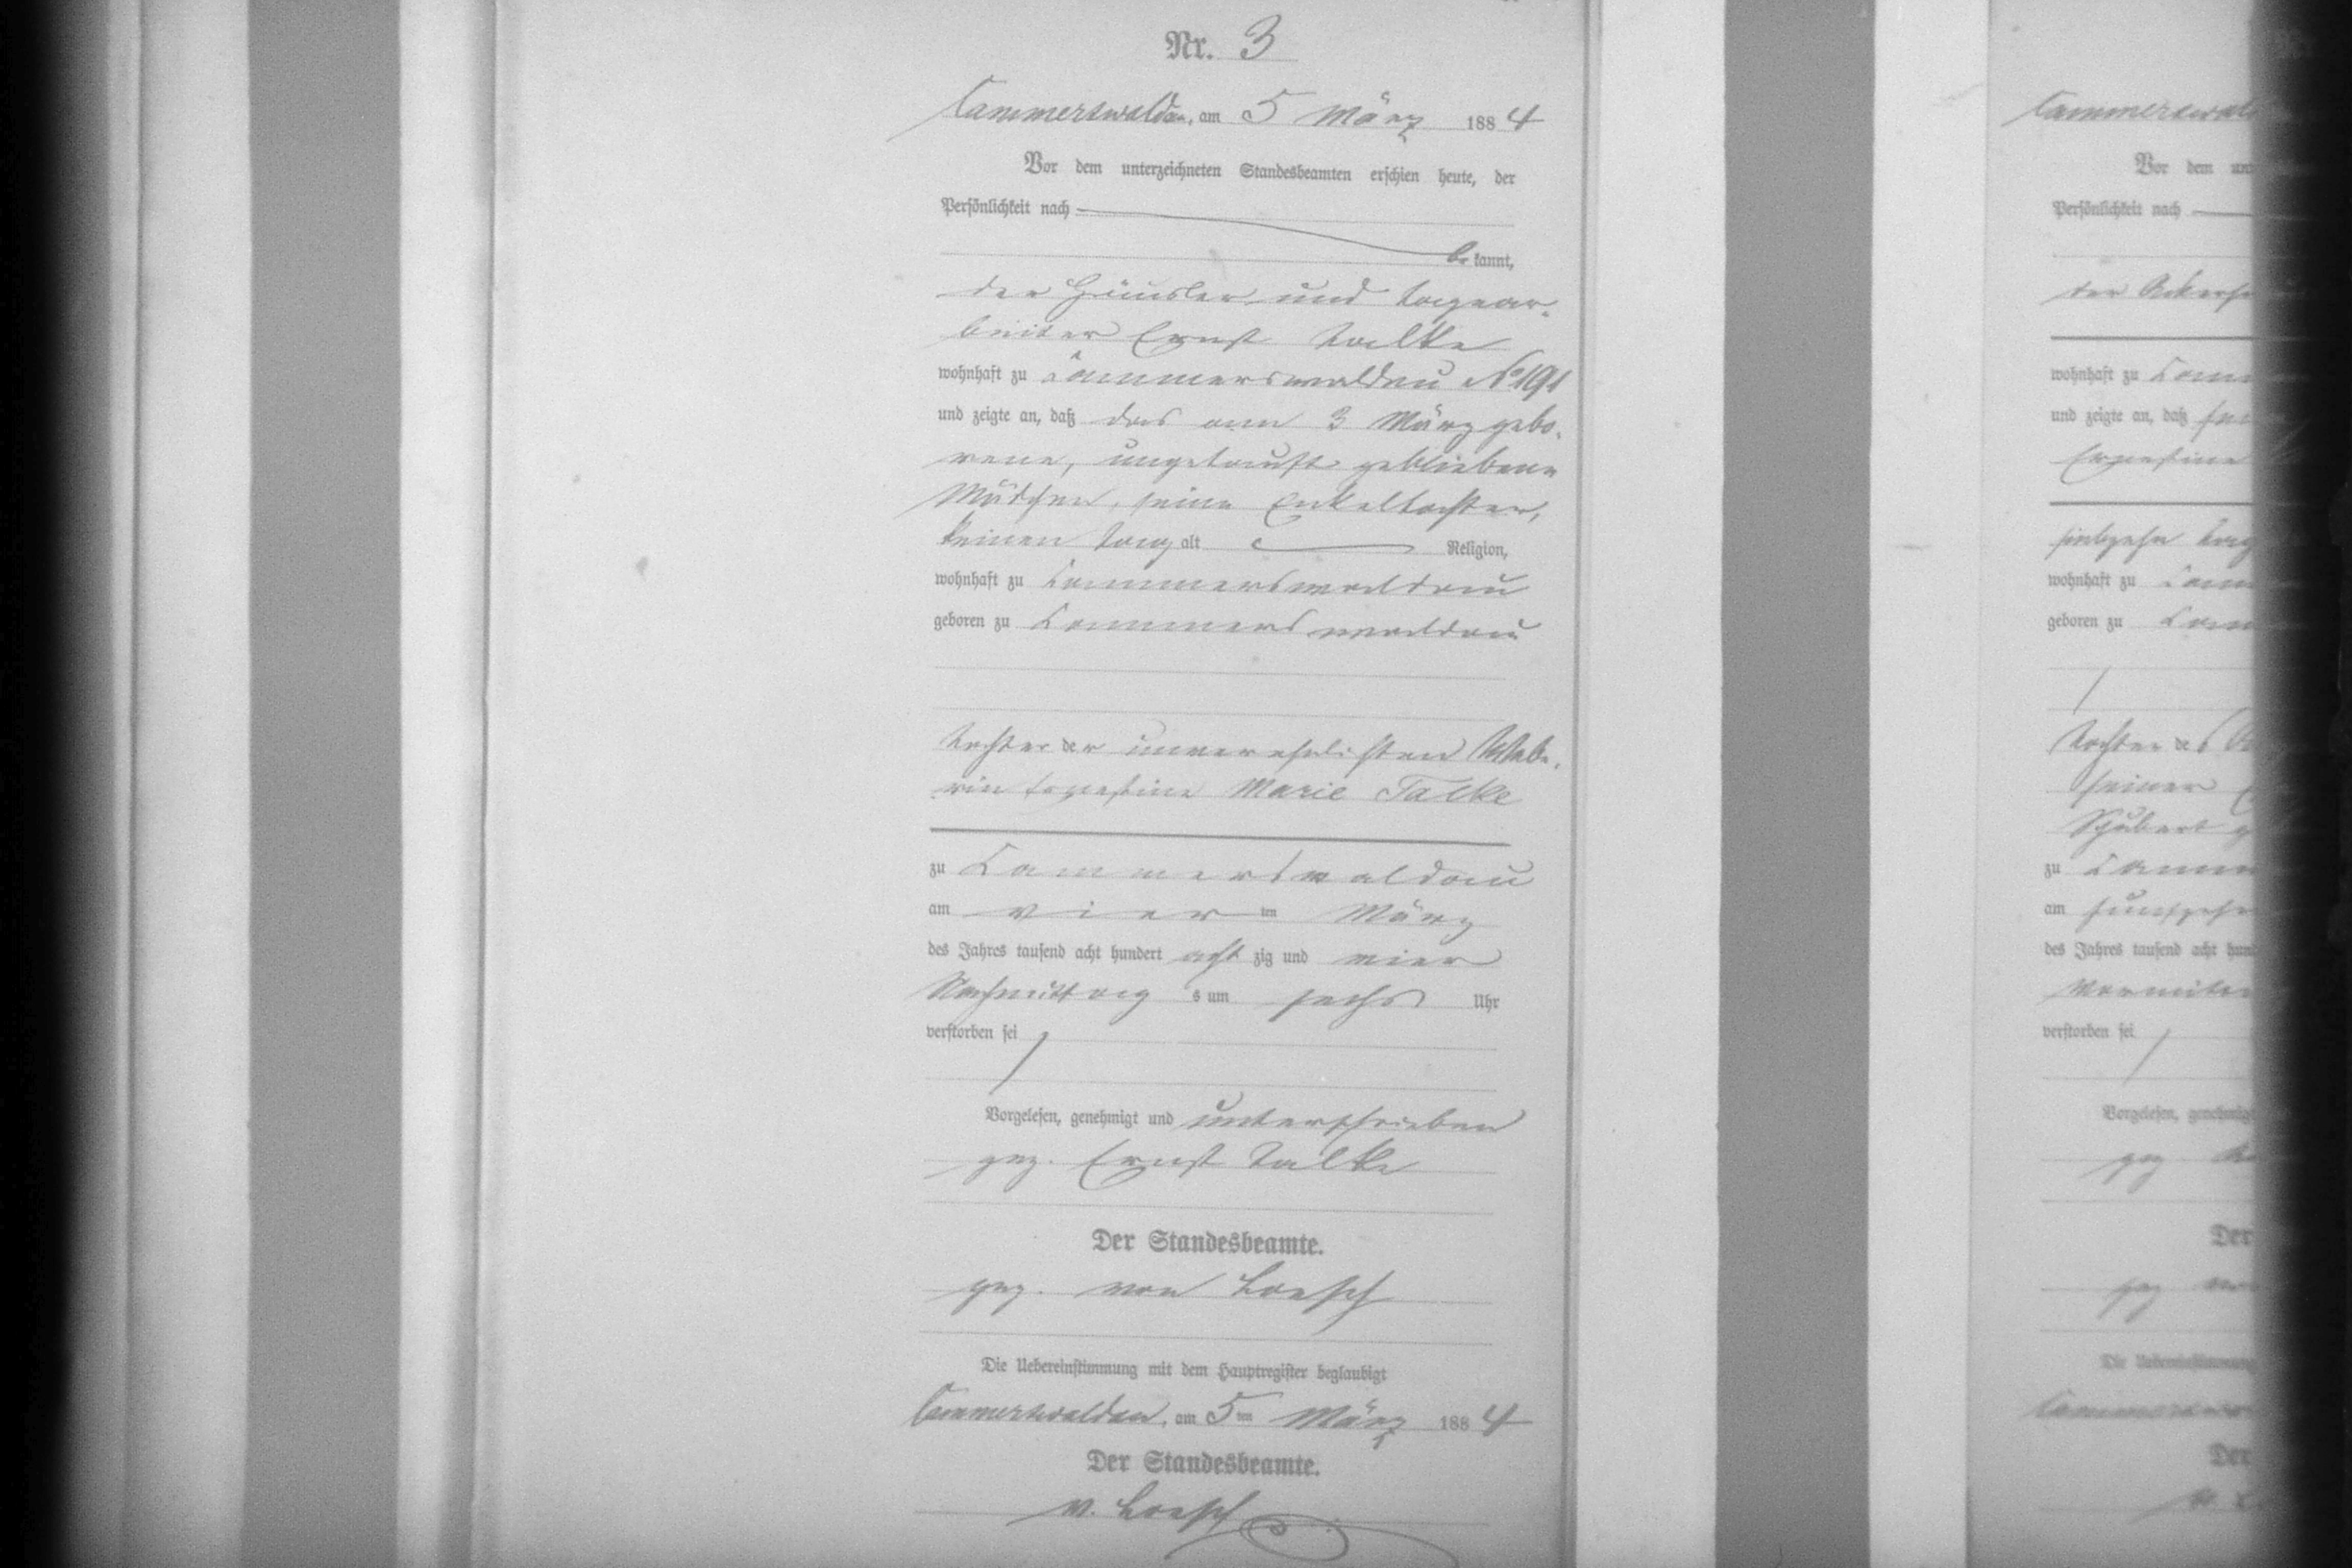 Nr. 3
Cammerswaldau, am 5 März 1884
Vor dem unterzeichneten Standesbeamten erschien heute, der
Persönlichkeit nach
bekannt,
der Häusler und Tagear-
beiter Ernst Talke
wohnhaft zu Cammerswaldau No 191
und zeigte an, daß das am 3 März gebo-
rene, ungetauft gebliebene
Mädchen, seine Enkeltochter,
keinen Tag alt Religion,
wohnhaft zu Cammerswaldau
geboren zu Cammerswaldau
Tochter der unverehelichten Webe-
rin Ernestine Marie Talke
zu Cammerswaldau
am vierten März
des Jahres tausend acht hundert achtzig und vier
Nachmittags um sechs Uhr
verstorben sei
Vorgelesen, genehmigt und unterschrieben
gez. Ernst Talke
Der Standesbeamte.
gez. von Loesch
Die Uebereinstimmung mit dem Hauptregister beglaubigt
Cammerswaldau, am 5ten März 1884
Der Standesbeamte.
v. Loesch
Cammerswald
Vor dem
Persönlichkeit nach
der
wohnhaft zu Camm
und zeigte an, daß
Ernestine
siebzehn Tag
wohnhaft zu Camm
geboren zu Cam
Tochter des
seiner
Schubert g
zu Camm
am
des Jahres tausend acht hund
Vormittag
verstorben sei
Vorgelesen, genehmigt
gez
Der
gez von
Die Uebereinstimmung
Cammerswald
Der
v. L